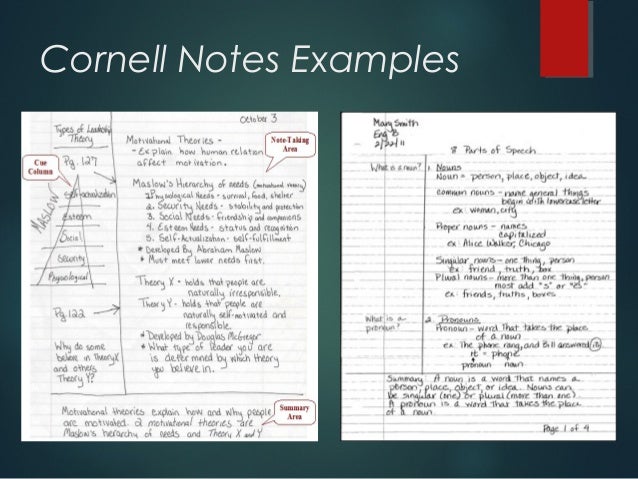 Cornell Notes Examples
October 3
Types of Leadership
Theory
Motivational Theories -
Note-Taking
Area
- Explain how human relation
affect motivation.
Cue
Column
Pg. 127
Maslow's Hierarchy of needs (motivational theory)
1. Physiological Needs - survival, food, shelter
2. Security Needs - stability and protection
3. Social Needs - friendship and companions
4. Esteem Needs - status and recognition
5. Self-Actualization - self-fulfillment
* Developed By Abraham Maslow
* Must meet lower needs first.
MASLOW
Self-actualization
Esteem
Social
Security
Physiological
Theory X - holds that people are
naturally irresponsible.
Theory Y - holds that people are
naturally self-motivated and
responsible.
* Developed by Douglas McGregor
* What type of leader you are
is determined by which theory
you believe in.
Pg. 122
Why do some
believe in Theory X
and others
Theory Y?
Summary
Area
Motivational theories explain how and why people
are motivated. 2 motivational theories are
Maslow's hierarchy of needs and Theory X and Y
Mary Smith
Eng 8
2/22/11
8 Parts of Speech
What is a noun?
1. Nouns
Noun = person, place, object, idea
common nouns - name general things
begin with lowercase letter
ex: woman, city
Proper nouns - names
capitalized
ex: Alice Walker, Chicago
Singular nouns - one thing, person
ex: friend, truth, box
Plural nouns - more than one thing, person
most add "s" or "es"
ex: friends, truths, boxes
What is a
pronoun?
2. Pronouns
Pronoun - word that takes the place
of a noun
ex: The phone rang, and Bill answered it.
it = phone
pronoun noun
Summary: A noun is a word that names a
person, place, object, or idea. Nouns can
be singular (one) or plural (more than one). A
pronoun is a word that takes the place
of a noun.
Page 1 of 4